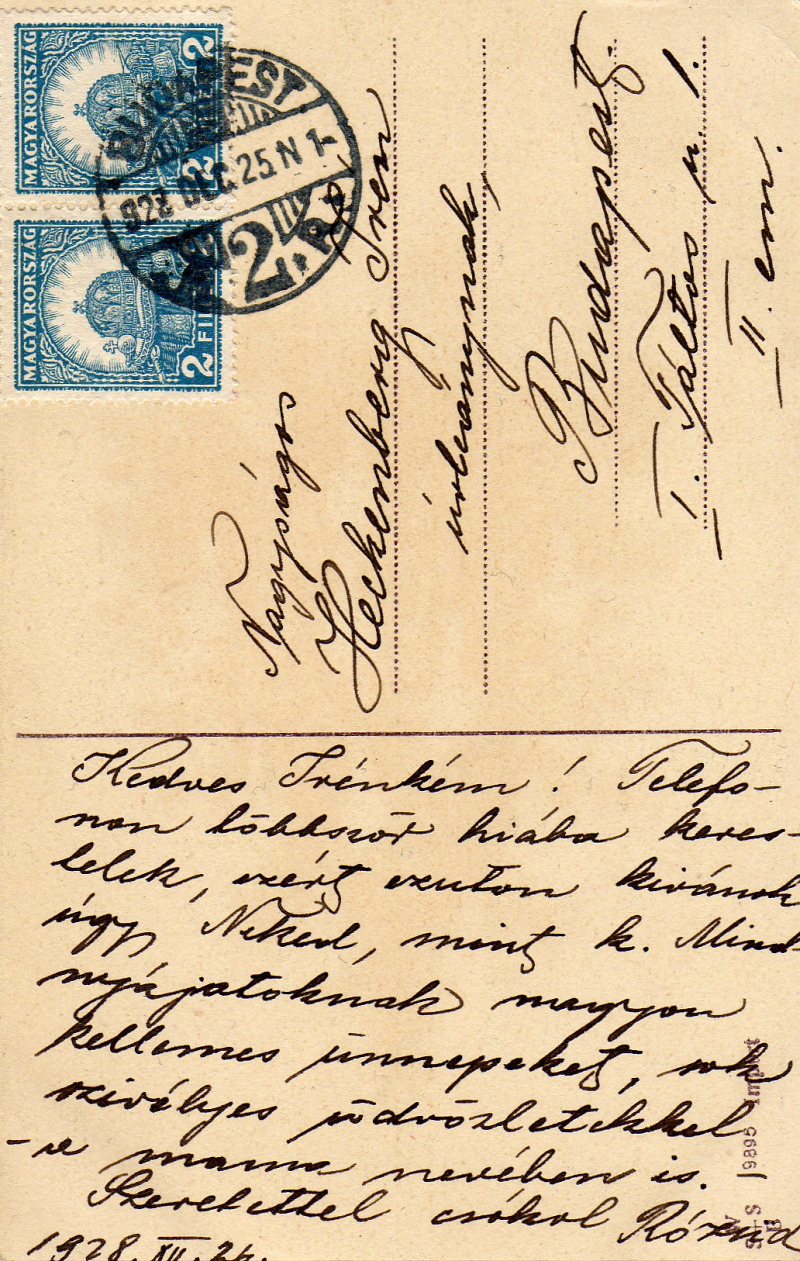 MAGYARORSZÁG
2
2
MAGYARORSZÁG
2 FIL
BUDAPEST
928 DEC 25 N 1-
2
Nagyságos
Heckenberg Iren
úrleánynak
Budapest
I. Táltos u. 1.
II. em.
Kedves Irénkém! Telefo-
non többször hiába keres-
telek, ezért ezuton kivánok
úgy Neked, mint k. Mind-
nyájatoknak nagyon
kellemes ünnepeket, sok
szivélyes üdvözletekkel
- a mama nevében is.
Szeretettel csókol Rózsid
1928. XII. 24.
9895 Import